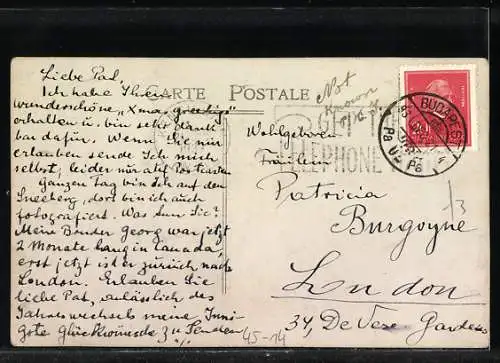 Liebe Pat,
Ich habe Ihren
wunderschöne "Xmas greetings"
erhalten u. bin sehr dank
bar dafür. Wenn Sie nur
erlauben sende Ich mich
selbst, leider nur als Postkarten
Ganzen Tag bin ich auf den
dort bin ich auch
fotografiert. Was tun Sie?
Mein Bruder Georg war jetzt
2 Monate lang in Canada,
erst jetzt ist er zurück nach
London. Erlauben Sie
liebe Pat, anlässlich des
Jahreswechsels meine Inni-
gste Glückwünsche zu senden
CARTE POSTALE
Not
known
Wohlgeboren
Fräulein
Patricia
Burgoyne
London
34, De Vere Gardens
TELEPHONE
BUDAPEST
13
45-14